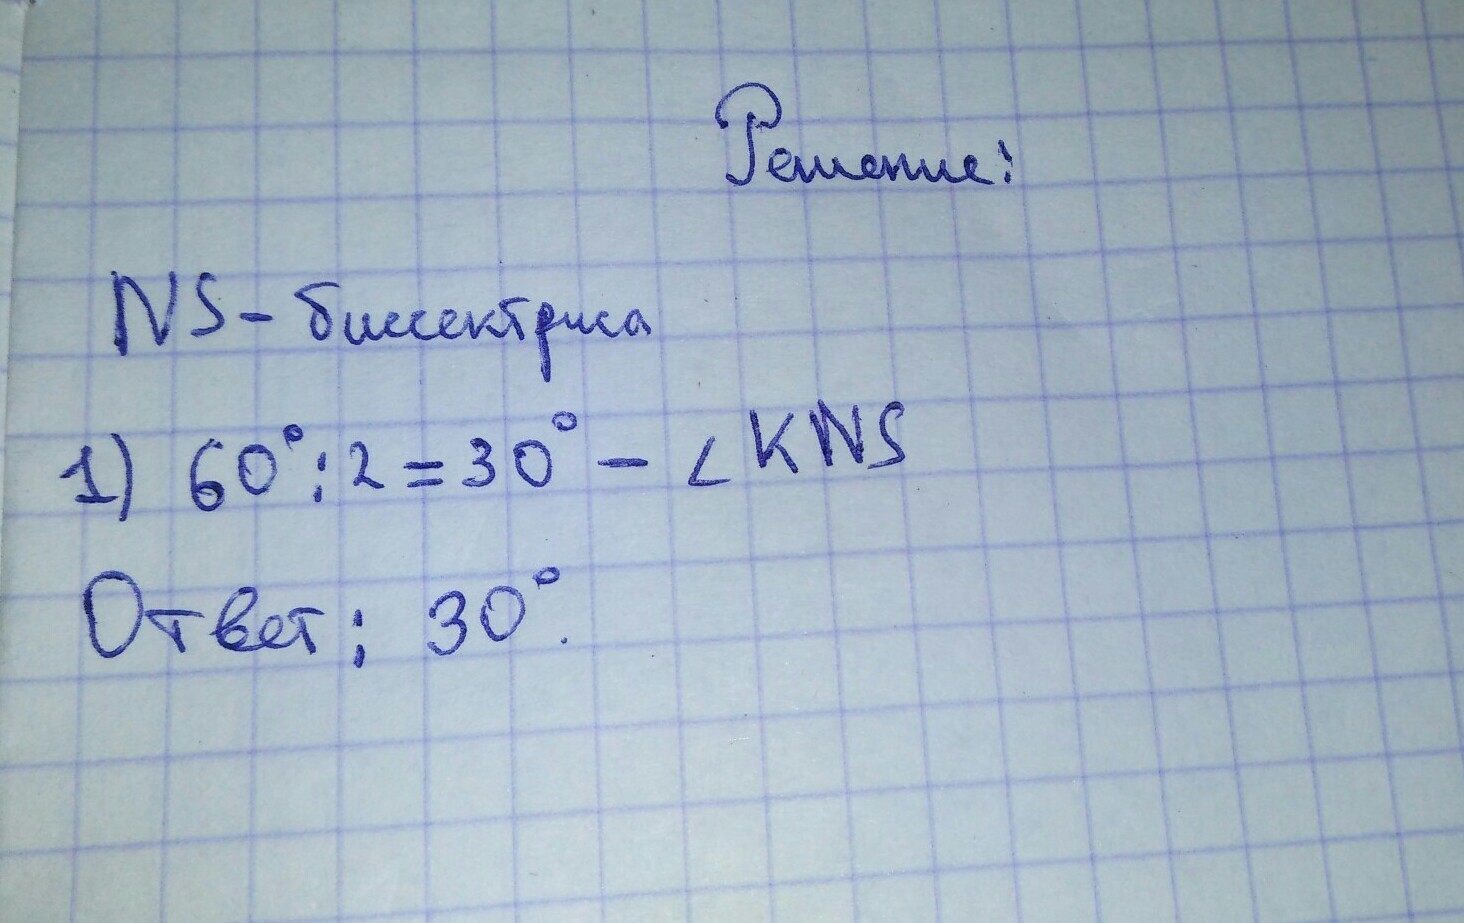 Решение:
NS - биссектриса
1) 60° : 2 = 30° - ∠KNS
Ответ: 30°.